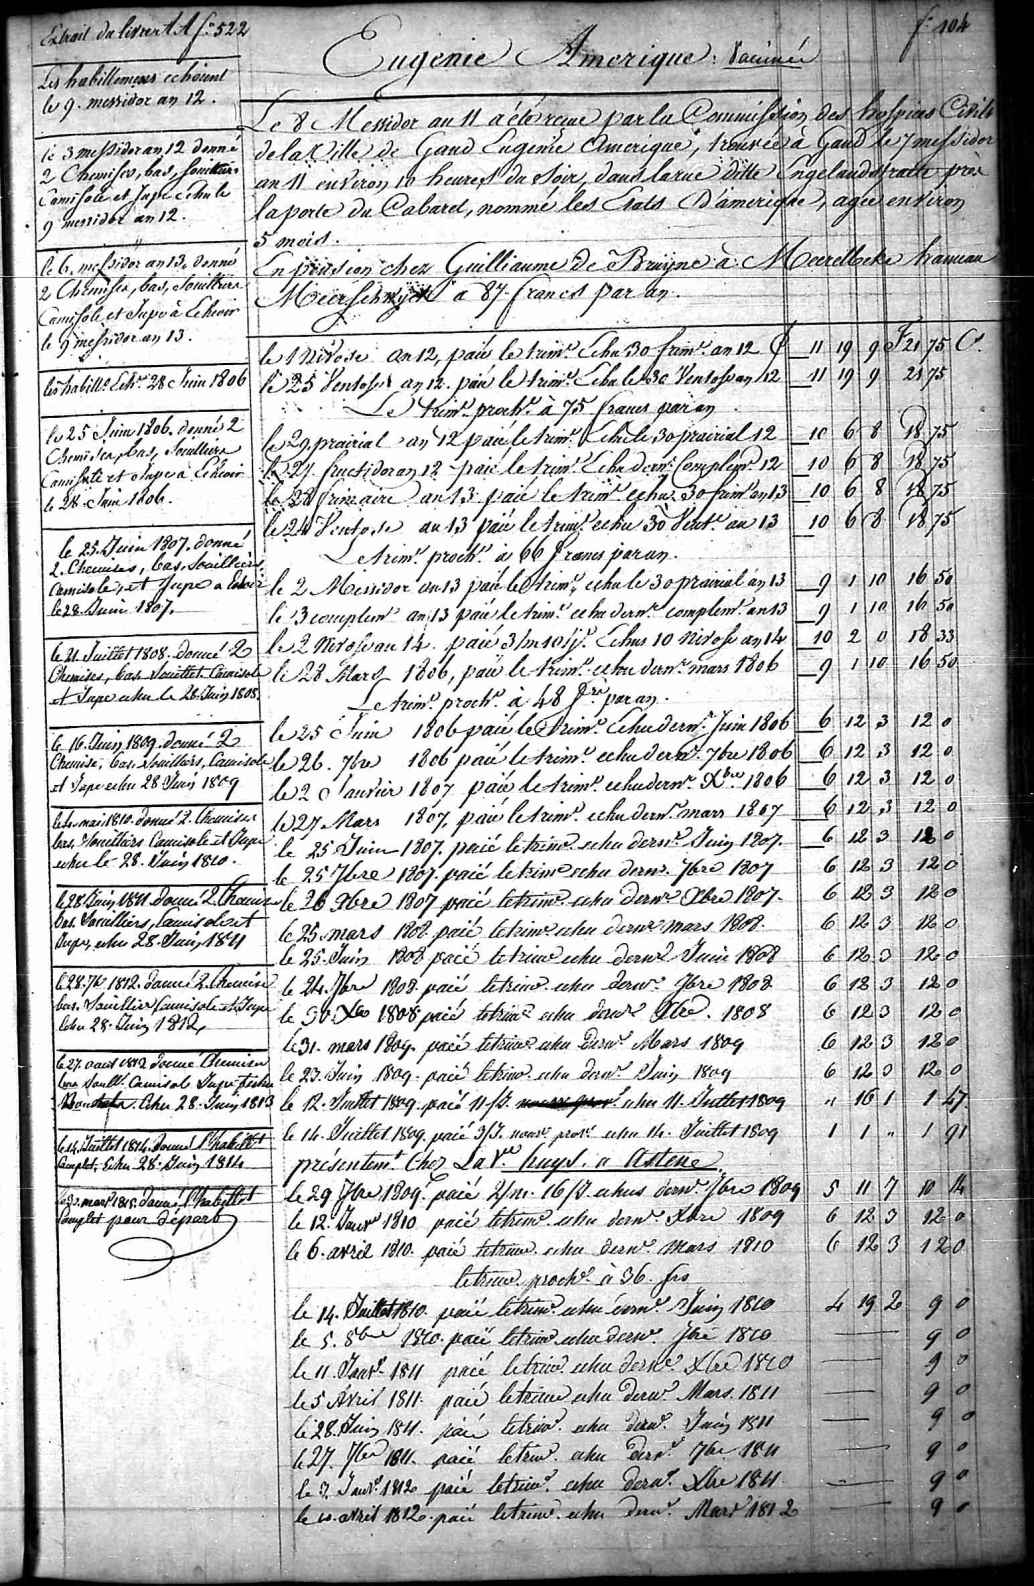 Extrait du livre A A fo. 522
fo. 104
Eugenie Amerique. Vaccinée
Les habillemens echoient
le 9. messidor an 12.
le 3 messidor an 12 donné
2 Chemises, bas, Souilliers
Camisole et Jupe echu le
9 messidor an 12.
le 6. messidor an 13. donné
2 Chemises, bas, Souilliers
Camisole et Jupe à Echeoir
le 9 messidor an 13.
les habill.s Ech.s 28 Juin 1806
le 25 Juin 1806. donné 2
Chemises, bas, Souilliers
Camisole et Jupe à Echeoir
le 28. Juin 1806.
le 25. Juin 1807. donné
2. Chemises, bas, Souilliers,
Camisole, et Jupe a Echoir
le 28 Juin 1807.
le 21. Juillet 1808. donné 2
Chemises, bas Souillet Camisole
et Jupe echu le 28 Juin 1808.
le 16. Juin 1809. donné 2
Chemise, bas, Souilliers, Camisole
et Jupe echu 28 Juin 1809
mai 1810. donné 2. Chemises
bas. Souilliers Camisole et Jupe
echu le 28. Juin 1810.
le 28 Juin 1811 donné 2 Chemises
bas. Souilliers, Camisole et
Jupe, echu 28. Juin 1811
le 28. 1812. donné 2. Chemise
bas. Souillier Camisole et Jupe
Echu 28. Juin 1812
le 27. aout 1812 donné Chemises
bas Soull. Camisol Jupe
Echu 28. Juin 1813
le 14. Juillet 1814. donné l'habillet
Complet, Echu 28. Juin 1814
mars 1815. donné l'habillet
Complet pour départ
Le 8 Messidor an 11 a été reçue par la Commission des hospices Civils
de la Ville de Gand Eugenie Amerique, trouvée à Gand le 7 messidor
an 11 environ 10 heures du Soir, dans la rue ditte Engelandstraete près
la porte du Cabaret, nommé les Etats D'amerique, agée environ
5 mois.
En pension chez Guilliaume de Bruyne à Meirelbeke hameau
à 87 francs par an.
le 1 Nivose an 12, paié le trim.e Echu 30 frim.e an 12 11 19 9 F 21 75 C.s
le 25 Ventose an 12. paié le trim.e Echu le 30 Ventose an 12 11 19 9 21 75
Le trim.e proch.e à 75 francs par an
le 29 prairial an 12 paié, le trim.e Echu le 30 prairial 12 10 6 8 18 75
le 27. fructidor an 12 paié le trim.e Echu dern.r Complem.e 12 10 6 8 18 75
le 28 frimaire an 13 paié le trim.e echu 30 frim.e an 13 10 6 8 18 75
le 24 Ventose an 13 paié le trim.e echu 30 Vent.e an 13 10 6 8 18 75
Le trim.e proch.e à 66 francs par an.
le 2 Messidor an 13 paié le trim.e echu le 30 prairial an 13 9 1 10 16 50
le 3 complem.e an 13 paié le trim.e echu dern.r complem.e an 13 9 1 10 16 50
le 2 Nivose an 14. paié 3/m 10/j. Echus 10 Nivose an 14 10 2 0 18 33
le 28 Mars 1806, paié le trim.e echu dern.r mars 1806 9 1 10 16 50
Le trim.e proch.e à 48 f. par an.
le 25 Juin 1806 paié le trim.e Echu dern.r Juin 1806 6 12 3 12 0
le 26. 7bre 1806 paié le trim.e echu dern.r 7bre 1806 6 12 3 12 0
le 2 Janvier 1807 paié le trim.e echu dern.r Xbre 1806 6 12 3 12 0
le 27 Mars 1807, paié le trim.e echu dern.r mars 1807 6 12 3 12 0
le 25 Juin 1807. paié le trim.e echu dern.r Juin 1807. 6 12 3 12 0
le 25 7bre 1807. paié le trim.e echu dern.r 7bre 1807 6 12 3 12 0
le 26 Xbre 1807 paié le trim.e echu dern.r Xbre 1807. 6 12 3 12 0
le 25. mars 1808. paié le trim.e echu dern.r mars 1808. 6 12 3 12 0
le 25. Juin 1808 paié le trim.e echu dern.r Juin 1808 6 12 3 12 0
le 24. 7bre 1808. paié le trim.e echu dern.r 7bre 1808 6 12 3 12 0
le 30. Xbre 1808 paié le trim.e echu dern.r Xbre. 1808 6 12 3 12 0
le 31. mars 1809. paié le trim.e echu dern.r Mars 1809 6 12 3 12 0
le 23. Juin 1809. paié le trim.e echu dern.r Juin 1809 6 12 3 12 0
le 12. Juillet 1809. paié 11/J. echu 11. Juillet 1809 " 16 1 1 47
le 14. Juillet 1809. paié 3/J. nour. prov. echu 14. Juillet 1809 1 1 " 1 91
présentem.t Chez La V.e huys. a Astene
le 29 7bre 1809. paié 2/m. 16/J. echus dern.r 7bre 1809 5 11 7 10 14
le 12. Janv.r 1810 paié le trim.e echu dern.r Xbre 1809 6 12 3 12 0
le 6. avril 1810. paié le trim.e echu dern.r mars 1810 6 12 3 12 0
le trim.e proch.e à 36. frs
le 14. Juillet 1810. paié le trim.e echu dern.r Juin 1810 4 19 2 9 0
le 5. 8bre 1810. paié le trim.e echu dern.r 7bre 1810 9 0
le 11. Janv.r 1811 paié le trim.e echu dern.r Xbre 1810 9 0
le 5 Avril 1811. paié le trim.e echu dern.r Mars. 1811 9 0
le 28. Juin 1811. paié le trim.e echu dern.r Juin 1811 9 0
le 27. 7bre 1811. paié le trim.e echu dern.r 7bre 1811 9 0
le 3. Janv.r 1812 paié le trim.e echu dern.r Xbre 1811 9 0
le 10. avril 1812. paié le trim.e echu dern.r Mars 1812 9 0